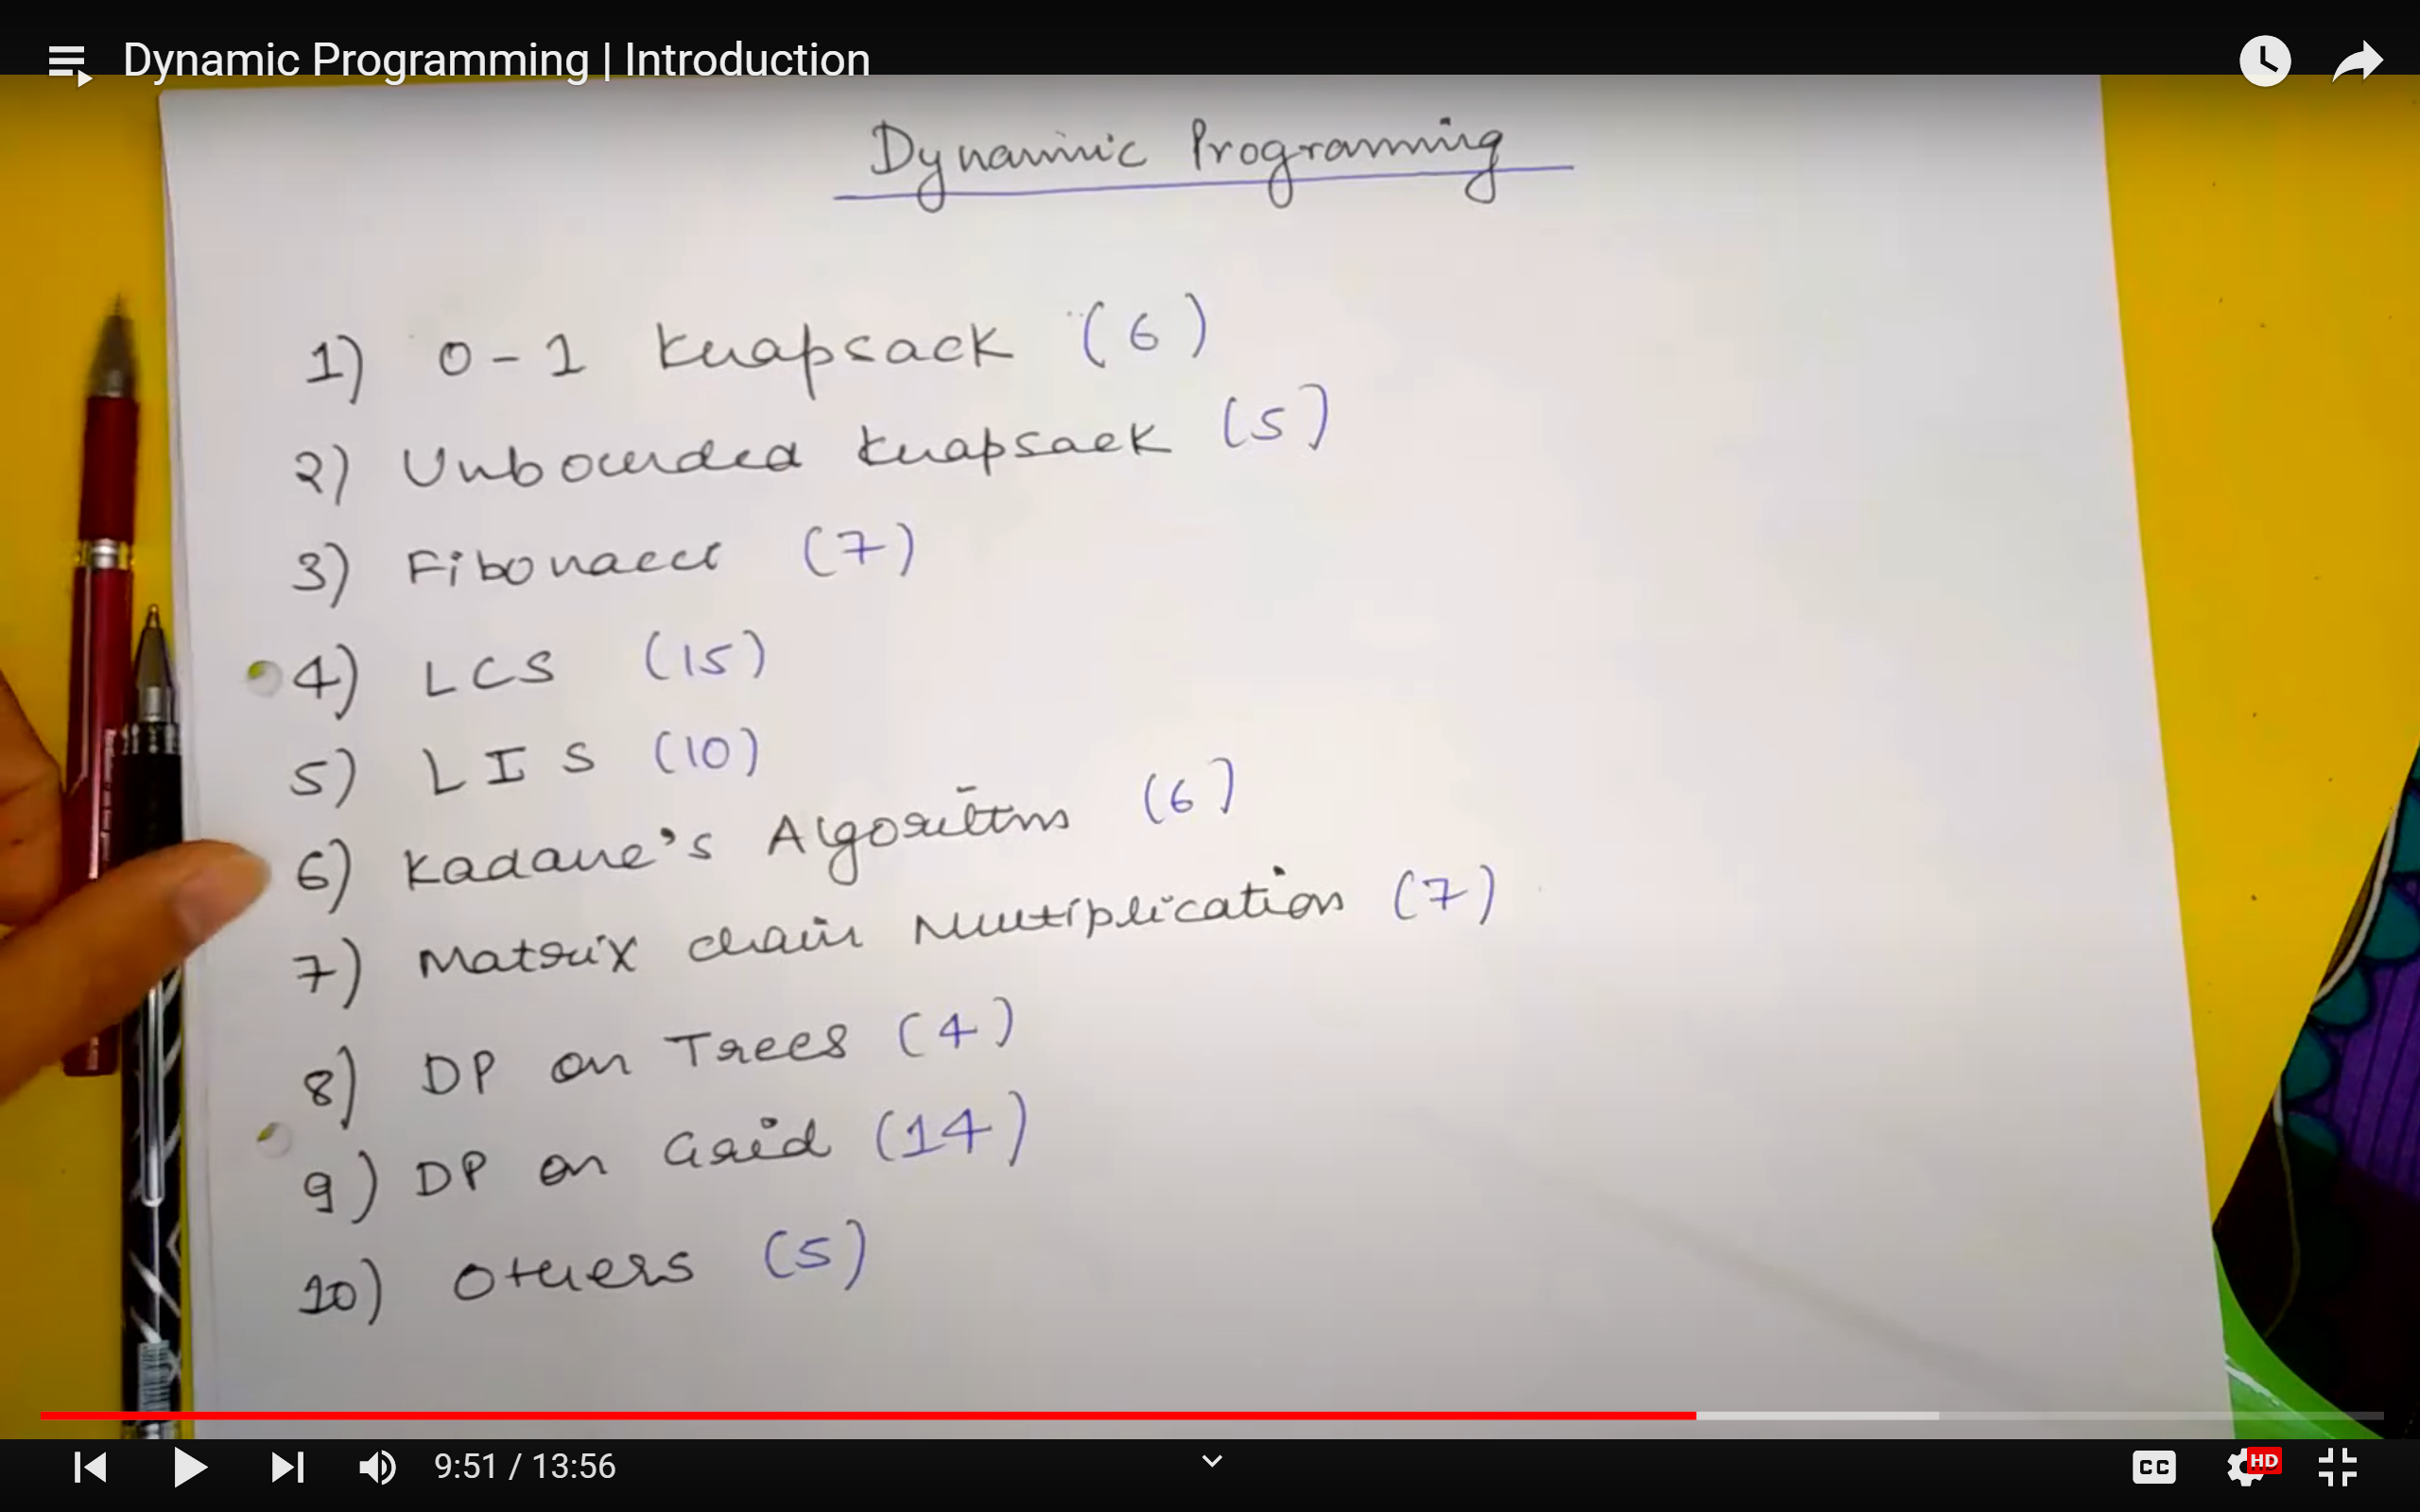 Dynamic Programming | Introduction
Dynamic Programming
1) 0-1 Knapsack (6)
2) Unbounded Knapsack (5)
3) Fibonacci (7)
4) LCS (15)
5) LIS (10)
6) Kadane's Algorithm (6)
7) Matrix chain Multiplication (7)
8) DP on Trees (4)
9) DP on Grid (14)
10) Others (5)
9:51 / 13:56
CC
HD